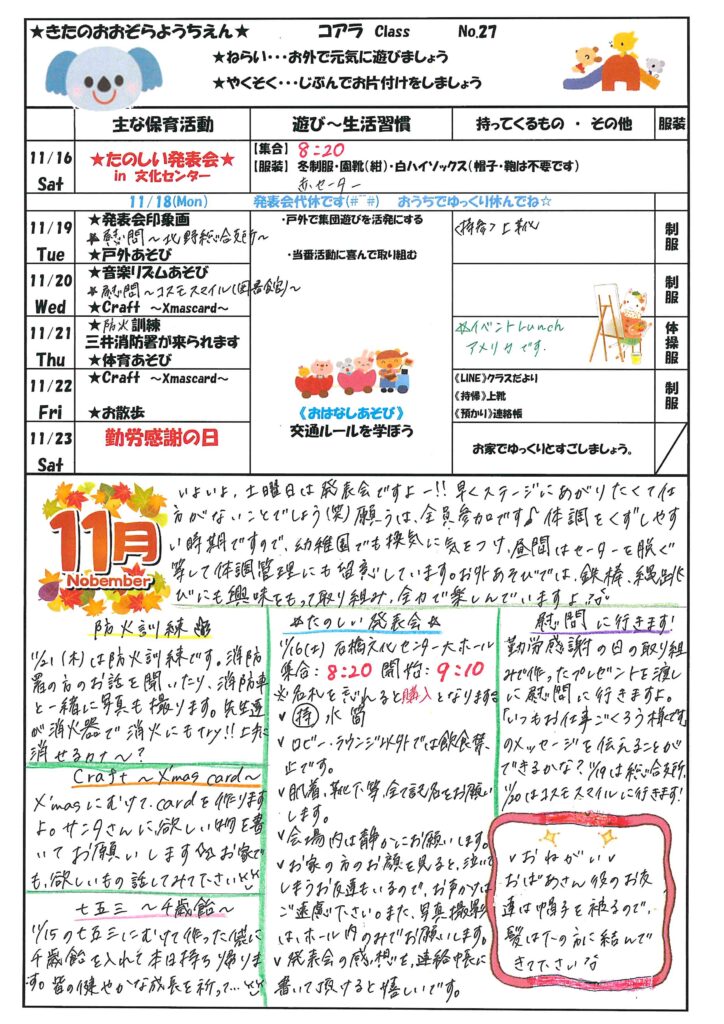 ★きたのおおぞらようちえん★ コアラ Class No.27
★ねらい・・・お外で元気に遊びましょう
★やくそく・・・じぶんでお片付けをしましょう
主な保育活動 遊び～生活習慣 持ってくるもの ・ その他 服装
11/16
Sat
★たのしい発表会★
in 文化センター
【集合】 8:20
【服装】 冬制服・園靴(紺)・白ハイソックス(帽子・鞄は不要です)
赤セーター
11/18(Mon) 発表会代休です(#^^#) おうちでゆっくり休んでね☆
11/19
Tue
★発表会印象画
★慰問～北野総合支所～
★戸外あそび
・戸外で集団遊びを活発にする
・当番活動に喜んで取り組む
<持参>上靴
制服
11/20
Wed
★音楽リズムあそび
★慰問～コスモスマイル(図書館)～
★Craft ～Xmascard～
制服
11/21
Thu
★防火訓練
三井消防署が来られます
★体育あそび
☆イベントLunch
アメリカです.
体操服
11/22
Fri
★Craft ～Xmascard～
★お散歩
《おはなしあそび》
交通ルールを学ぼう
《LINE》クラスだより
《持帰》上靴
《預かり》連絡帳
制服
11/23
Sat
勤労感謝の日
お家でゆっくりとすごしましょう。
11月
Nobember
いよいよ、土曜日は発表会ですよー!!早くステージにあがりたくて仕
方がないことでしょう(笑)願うは、全員参加です♪体調をくずしやす
い時期ですので、幼稚園でも換気に気をつけ、昼間はセーターを脱ぐ
等して体調管理にも留意しています。お外あそびでは、鉄棒、縄跳
びにも興味をもって取り組み、全力で楽しんでいますよ
防火訓練
11/21(木)は防火訓練です。消防
署の方のお話を聞いたり、消防車
と一緒に写真も撮ります。先生達
が消火器で消火にもtry!!上手に
消せるカナ～?
Craft ～X'mas card～
X'masにむけて、cardを作ります
よ。サンタさんに欲しい物を書
いてお願いします☆お家で
も、欲しいもの話してみて下さい
七五三 ～千歳飴～
11/15の七五三にむけて作った袋に
千歳飴を入れて本日持ち帰りま
す。皆の健やかな成長を祈って…
☆たのしい発表会☆
11/16(土) 石橋文化センター大ホール
集合:8:20 開始:9:10
※名札を忘れると購入となります
✓(持)水筒
✓ロビー・ラウンジ以外では飲食禁
止です。
✓肌着、靴下等、全て記名をお願い
します。
✓会場内は静かにお願いします。
✓お家の方のお顔を見ると、泣いて
しまうお友達もいるので、お声かけは
ご遠慮下さい。また、写真撮影
は、ホール内のみでお願いします。
✓発表会の感想を、連絡帳に
書いて頂けると嬉しいです。
慰問に行きます!
勤労感謝の日の取り組
みで作ったプレゼントを渡し
に慰問に行きますよ。
「いつもお仕事ごくろう様です」
のメッセージを伝えることが
できるかな?11/19は総合支所、
11/20はコスモスマイルに行きます!
✓おねがい✓
おばあさん役のお友
達は帽子を被るので、
髪は下の方に結んで
きて下さいな